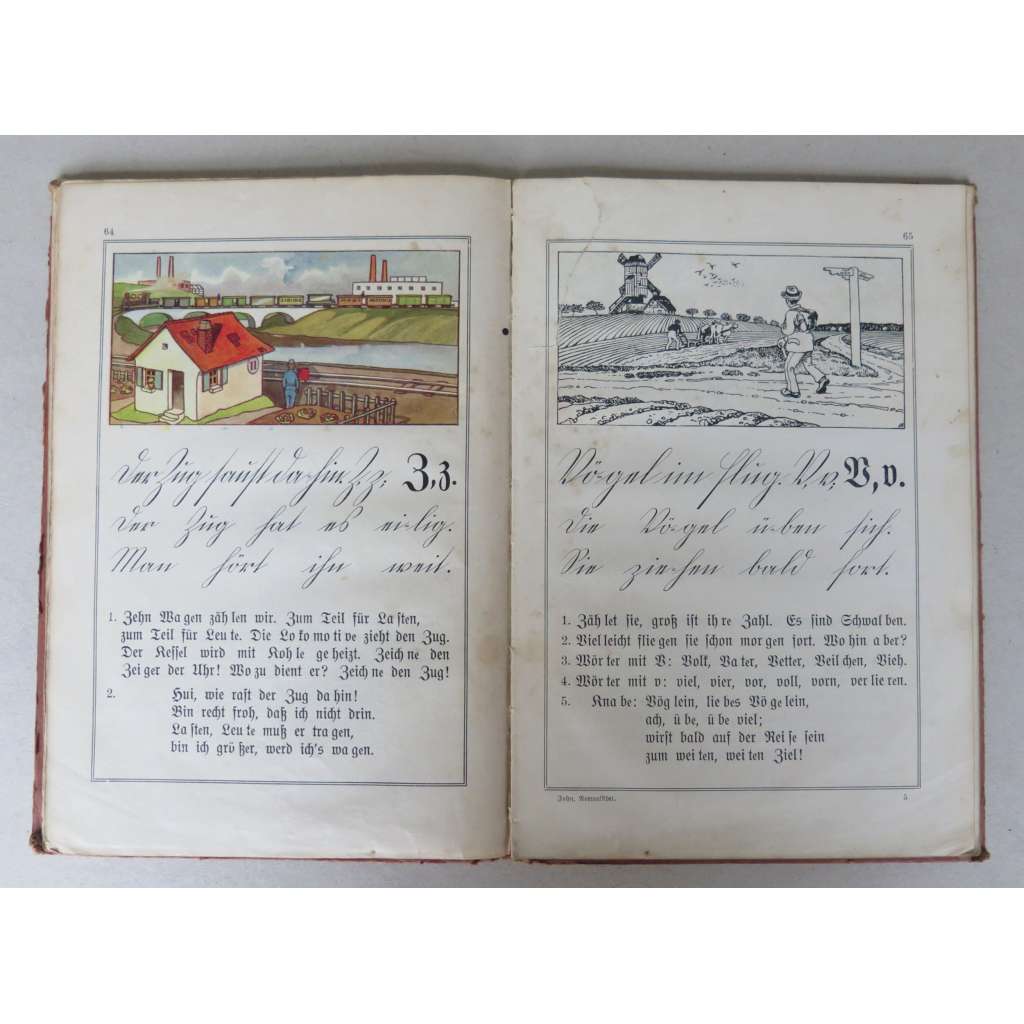 64
Der Zug saust da-hin. Z, z; Z, z.
Der Zug hat es ei-lig.
Man hört ihn weit.
1. Zehn Wa gen zäh len wir. Zum Teil für La sten,
zum Teil für Leu te. Die Lo ko mo ti ve zieht den Zug.
Der Kessel wird mit Koh le ge heizt. Zeich ne den
Zei ger der Uhr! Wo zu dient er? Zeich ne den Zug!
2. Hui, wie rast der Zug da hin!
Bin recht froh, daß ich nicht drin.
La sten, Leu te muß er tra gen,
bin ich grö ßer, werd ich's wa gen.
65
Vö-gel im Flug. V, v; V, v.
Die Vö-gel ü-ben sich.
Sie zie-hen bald fort.
1. Zäh let sie, groß ist ih re Zahl. Es sind Schwal ben.
2. Viel leicht flie gen sie schon mor gen fort. Wo hin a ber?
3. Wör ter mit V: Volk, Va ter, Vetter, Veil chen, Vieh.
4. Wör ter mit v: viel, vier, vor, voll, vorn, ver lie ren.
5. Kna be: Vög lein, lie bes Vö ge lein,
ach, ü be, ü be viel;
wirst bald auf der Rei se sein
zum wei ten, wei ten Ziel!
5